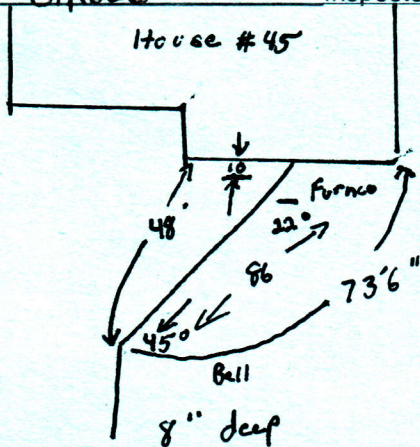 House # 45
10
Furnco
22°
48'
86
73'6"
45°
Bell
8" deep